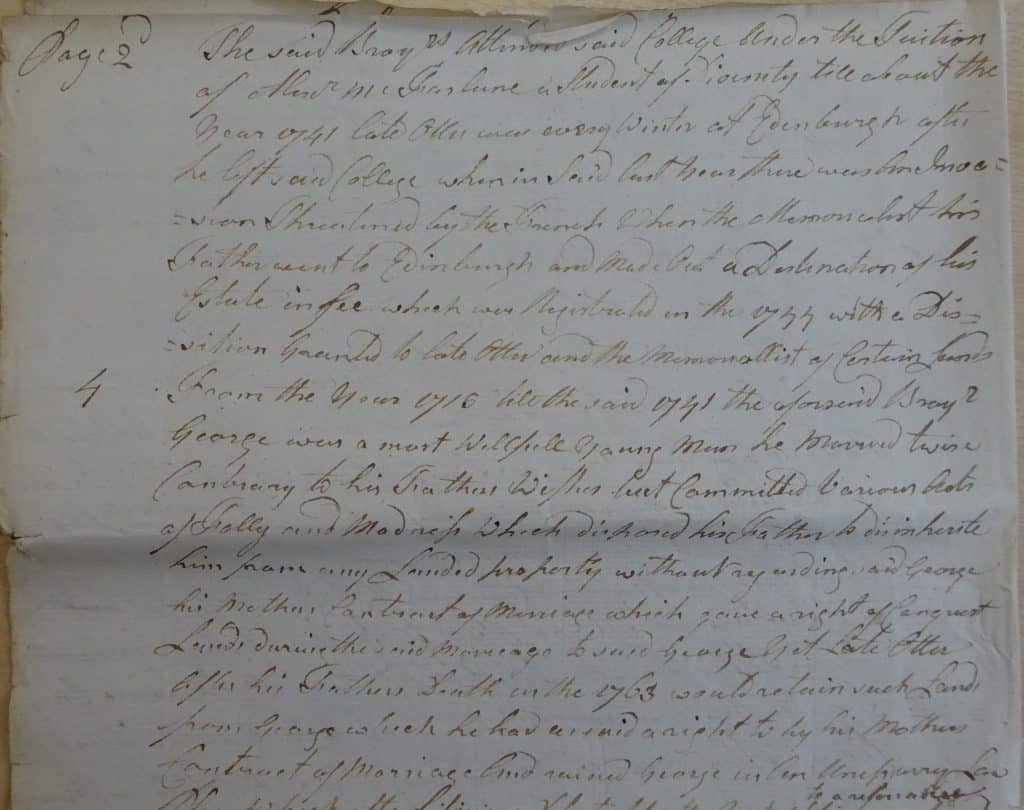 Page 2d
The said Broyrs Attend said College Under the Tuition
of Mr Mc Farlane a Student of Divinity till about the
Year 1741 late Otter was every Winter at Edinburgh after
he left said College when in said last year there was some Inva=
=sion Threatned by the French When the Memorialist his
Father went to Edinburgh and made Out a Destination of his
Estate in fee which was Registrated in the 1744 with a Dis=
=sition Granted to late Otter and the Memorallist of Certain Lands
4 From the Year 1716 till the said 1741 the aforsaid Broyr
George was a most Wellfull Young Man he Married twise
Contrary to his Fathers Wishes but Committed Various Acts
of Folly and Madness Which disposed his Father to disinherite
him from any Landed property without regarding said George
his Mothers Contract of Marriage which gave a right of Conquest
Lands during the said Marriage to said George Yet Late Otter
After his Fathers Death in the 1763 would retain such Lands
from George which he had as said a right to by his Mothers
Contract of Marriage And ruined George in An Unesparry Law
to a